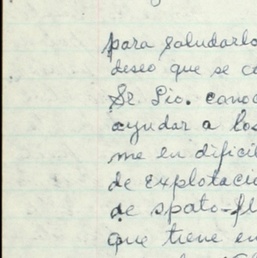 para saludarlo
deseo que se
Sr. Lic. cono
ayudar a los
me en dificil
de explotacio
de spato-fl
que tiene en